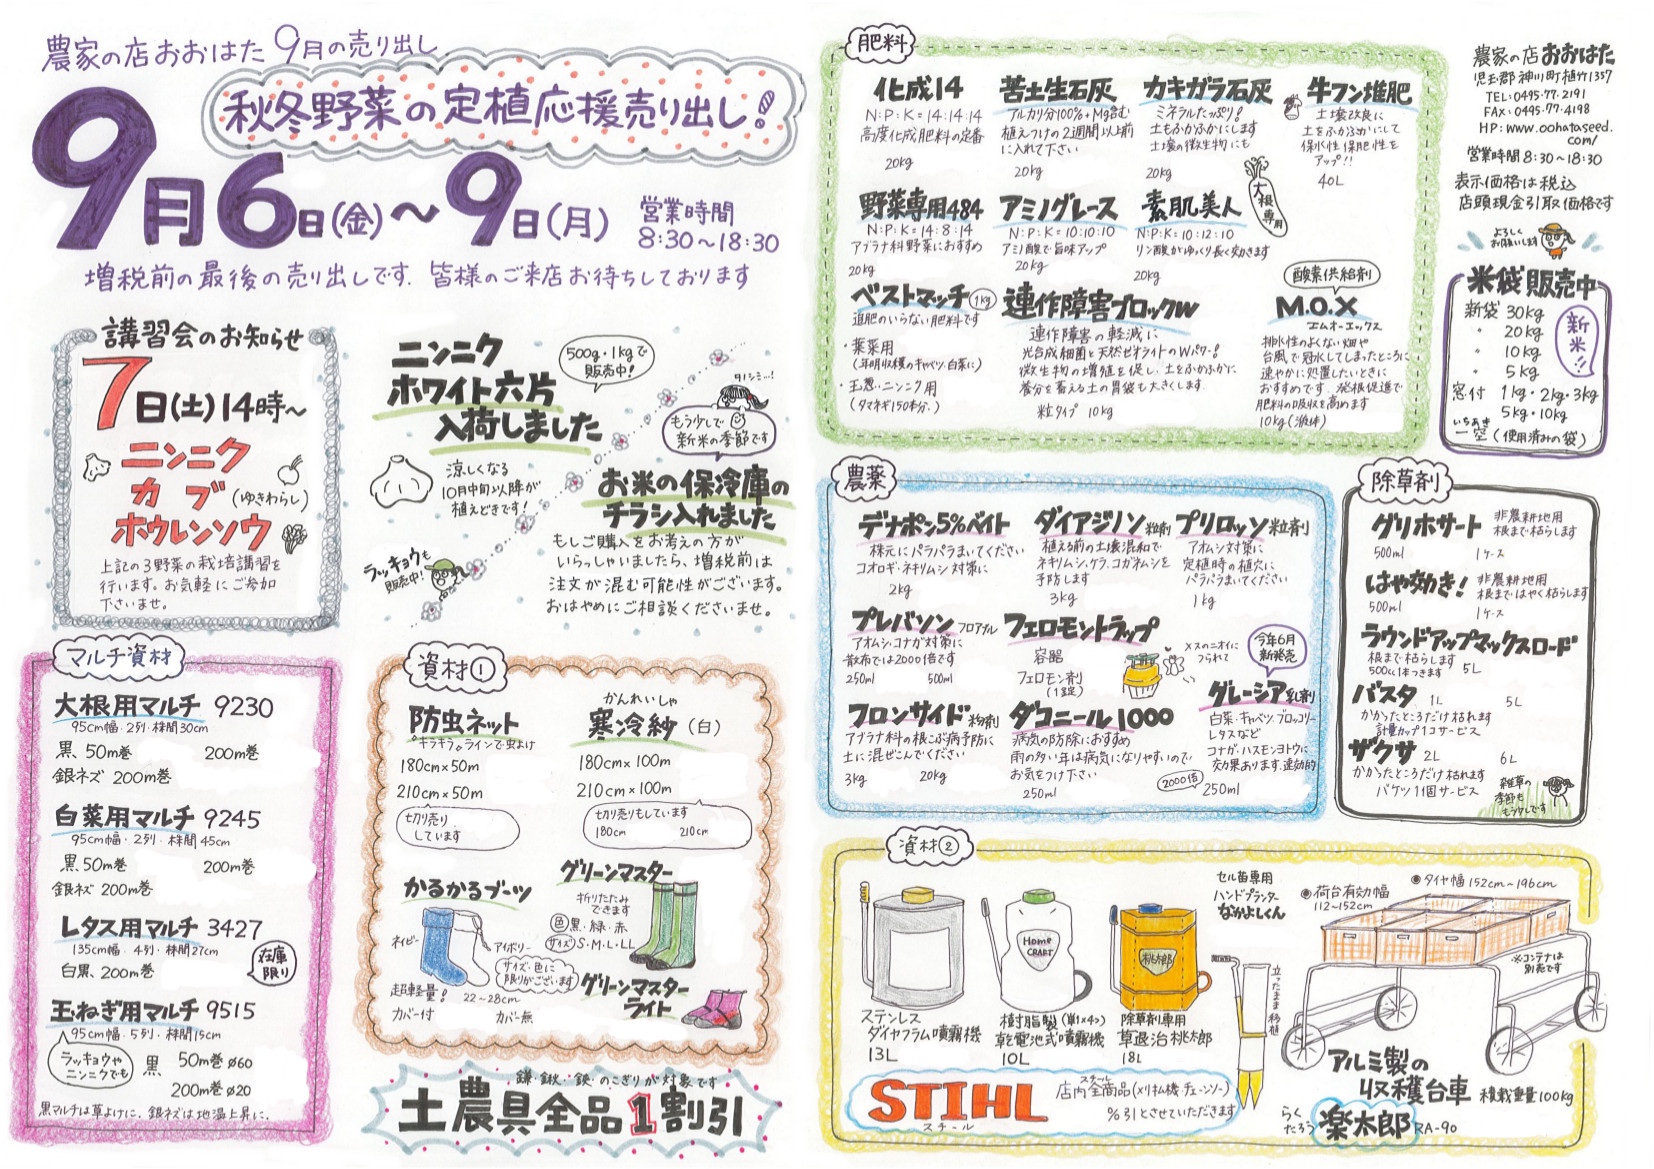 農家の店おおはた 9月の売り出し
秋冬野菜の定植応援売り出し!
9月6日(金)~9日(月)
営業時間
8:30~18:30
増税前の最後の売り出しです。皆様のご来店お待ちしております
講習会のお知らせ
7日(土)14時~
ニンニク
カブ(ゆきわらし)
ホウレンソウ
上記の3野菜の栽培講習を
行います。お気軽にご参加
下さいませ。
ニンニク
ホワイト六片
入荷しました
500g・1kgで
販売中!
涼しくなる
10月中旬以降が
植えどきです!
ラッキョウも
販売中!
タノシミ…!
もう少しで
新米の季節です
お米の保冷庫の
チラシ入れました
もしご購入をお考えの方が
いらっしゃいましたら、増税前は
注文が混む可能性がございます。
おはやめにご相談くださいませ。
マルチ資材
大根用マルチ 9230
95cm幅・2列・株間30cm
黒、50m巻 200m巻
銀ネズ 200m巻
白菜用マルチ 9245
95cm幅・2列・株間45cm
黒、50m巻 200m巻
銀ネズ 200m巻
レタス用マルチ 3427
135cm幅・4列・株間27cm
白黒、200m巻
在庫
限り
玉ねぎ用マルチ 9515
95cm幅・5列・株間15cm
ラッキョウや
ニンニクでも
黒 50m巻 ø60
200m巻 ø20
黒マルチは草よけに、銀ネズは地温上昇に、
資材①
防虫ネット
"キラキラ"ラインで虫よけ
180cm×50m
210cm×50m
切り売り
しています
かんれいしゃ
寒冷紗(白)
180cm×100m
210cm×100m
切り売りもしています
180cm 210cm
かるかるブーツ
ネイビー
アイボリー
サイズ・色に
限りがございます
超軽量! 22~28cm
カバー付 カバー無
グリーンマスター
折りたたみ
できます
色 黒・緑・赤
サイズ S・M・L・LL
グリーンマスター
ライト
鎌・鍬・鋏・のこぎりが対象です
土農具全品1割引
肥料
化成14
N:P:K=14:14:14
高度化成肥料の定番
20kg
苦土生石灰
アルカリ分100%+Mg含む
植えつけの2週間以上前
に入れて下さい
20kg
カキガラ石灰
ミネラルたっぷり!
土もふかふかにします
土壌の微生物にも
20kg
牛フン堆肥
土壌改良に
土をふかふかにして
保水性 保肥性を
アップ!!
40L
野菜専用484
N:P:K=14:8:14
アブラナ科野菜におすすめ
20kg
アミノグレース
N:P:K=10:10:10
アミノ酸で旨味アップ
20kg
素肌美人
N:P:K=10:12:10
リン酸がゆっくり長く効きます
20kg
大根専用
ベストマッチ 1kg
追肥のいらない肥料です
・葉菜用
(年明収穫のキャベツ・白菜に)
・玉葱・ニンニク用
(タマネギ150本分)
連作障害ブロックW
連作障害の軽減に
光合成細菌と天然ゼオライトのWパワー!
微生物の増殖を促し、土をふかふかに
養分を蓄える土の胃袋も大きくします
粒タイプ 10kg
酸素供給剤
M.O.X
エムオーエックス
排水性のよくない畑や
台風で冠水してしまったところに
速やかに処置したいときに
おすすめです。発根促進で
肥料の吸収を高めます
10kg(液体)
農家の店おおはた
児玉郡神川町植竹1357
TEL:0495-77-2191
FAX:0495-77-4198
HP:www.oohataseed.
com/
営業時間8:30~18:30
表示価格は税込
店頭現金引取価格です
よろしく
お願いします
米袋販売中
新袋 30kg
〃 20kg
〃 10kg
〃 5kg
窓付 1kg・2kg・3kg
5kg・10kg
いちあき
一空(使用済みの袋)
新米!!
農薬
デナポン5%ベイト
株元にパラパラまいてください
コオロギ・ネキリムシ対策に
2kg
ダイアジノン粒剤
植える前の土壌混和で
ネキリムシ、ケラ、コガネムシを
予防します
3kg
プリロッソ粒剤
アオムシ対策に
定植時の植穴に
パラパラまいてください
1kg
プレバソンフロアブル
アオムシ・コナガ対策に
散布では2000倍です
250ml 500ml
フェロモントラップ
容器
フェロモン剤
(1錠)
メスのニオイに
つられて
今年6月
新発売
グレーシア乳剤
白菜・キャベツ・ブロッコリー
レタスなど
コナガ、ハスモンヨトウに
効果あります。速効的
2000倍
250ml
フロンサイド粉剤
アブラナ科の根こぶ病予防に
土に混ぜこんでください
3kg 20kg
ダコニール1000
病気の防除におすすめ
雨の多い年は病気になりやすいので
お気をつけ下さい
250ml
除草剤
グリホサート 非農耕地用
根まで枯らします
500ml 1ケース
はや効き! 非農耕地用
根まではやく枯らします
500ml 1ケース
ラウンドアップマックスロード
根まで枯らします
500cc1本つきます 5L
バスタ 1L 5L
かかったところだけ枯れます
計量カップ1コサービス
ザクサ 2L 6L
かかったところだけ枯れます
バケツ1個サービス
雑草の
季節も
もう少しです
資材②
ステンレス
ダイヤフラム噴霧機
13L
Home
CRAFT
樹脂製(単1×4コ)
乾電池式噴霧機
10L
桃太郎
除草剤専用
草退治桃太郎
18L
セル苗専用
ハンドプランター
なかよしくん
立ったまま移植
●荷台有効幅
112~152cm
●タイヤ幅152cm~196cm
※コンテナは
別売です
アルミ製の
収穫台車 積載重量100kg
らく
たろう
楽太郎 RA-90
STIHL
スチール
スチール
店内全商品(刈り機・チェーンソー)
%引とさせていただきます